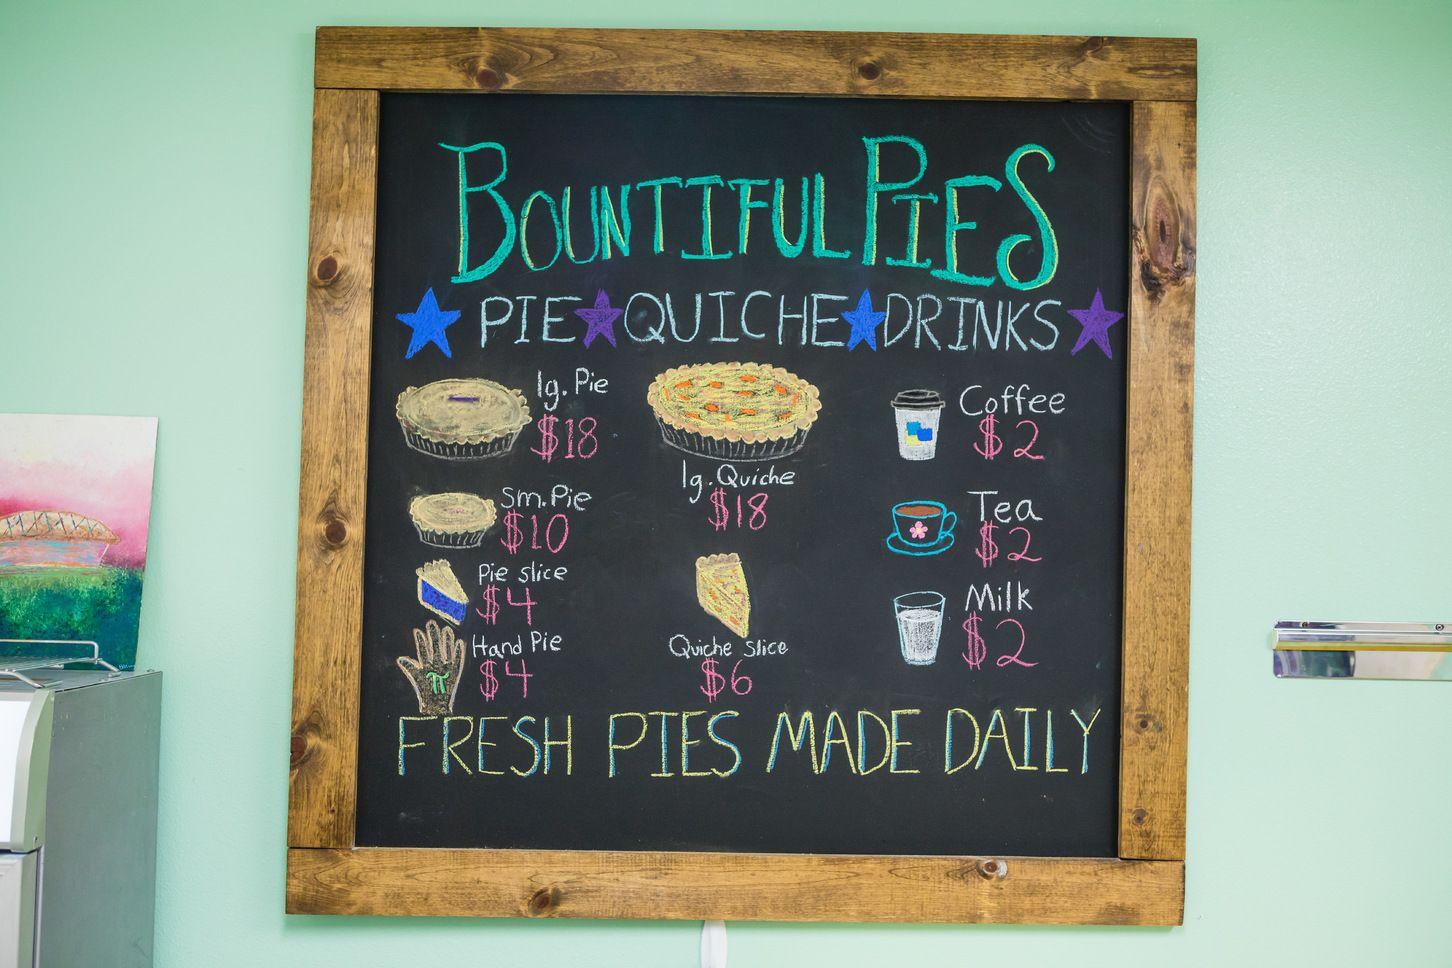 BOUNTIFUL PIES
PIE QUICHE DRINKS
lg. Pie
$18
Sm. Pie
$10
Pie slice
$4
Hand Pie
$4
π
lg. Quiche
$18
Quiche slice
$6
Coffee
$2
Tea
$2
Milk
$2
FRESH PIES MADE DAILY